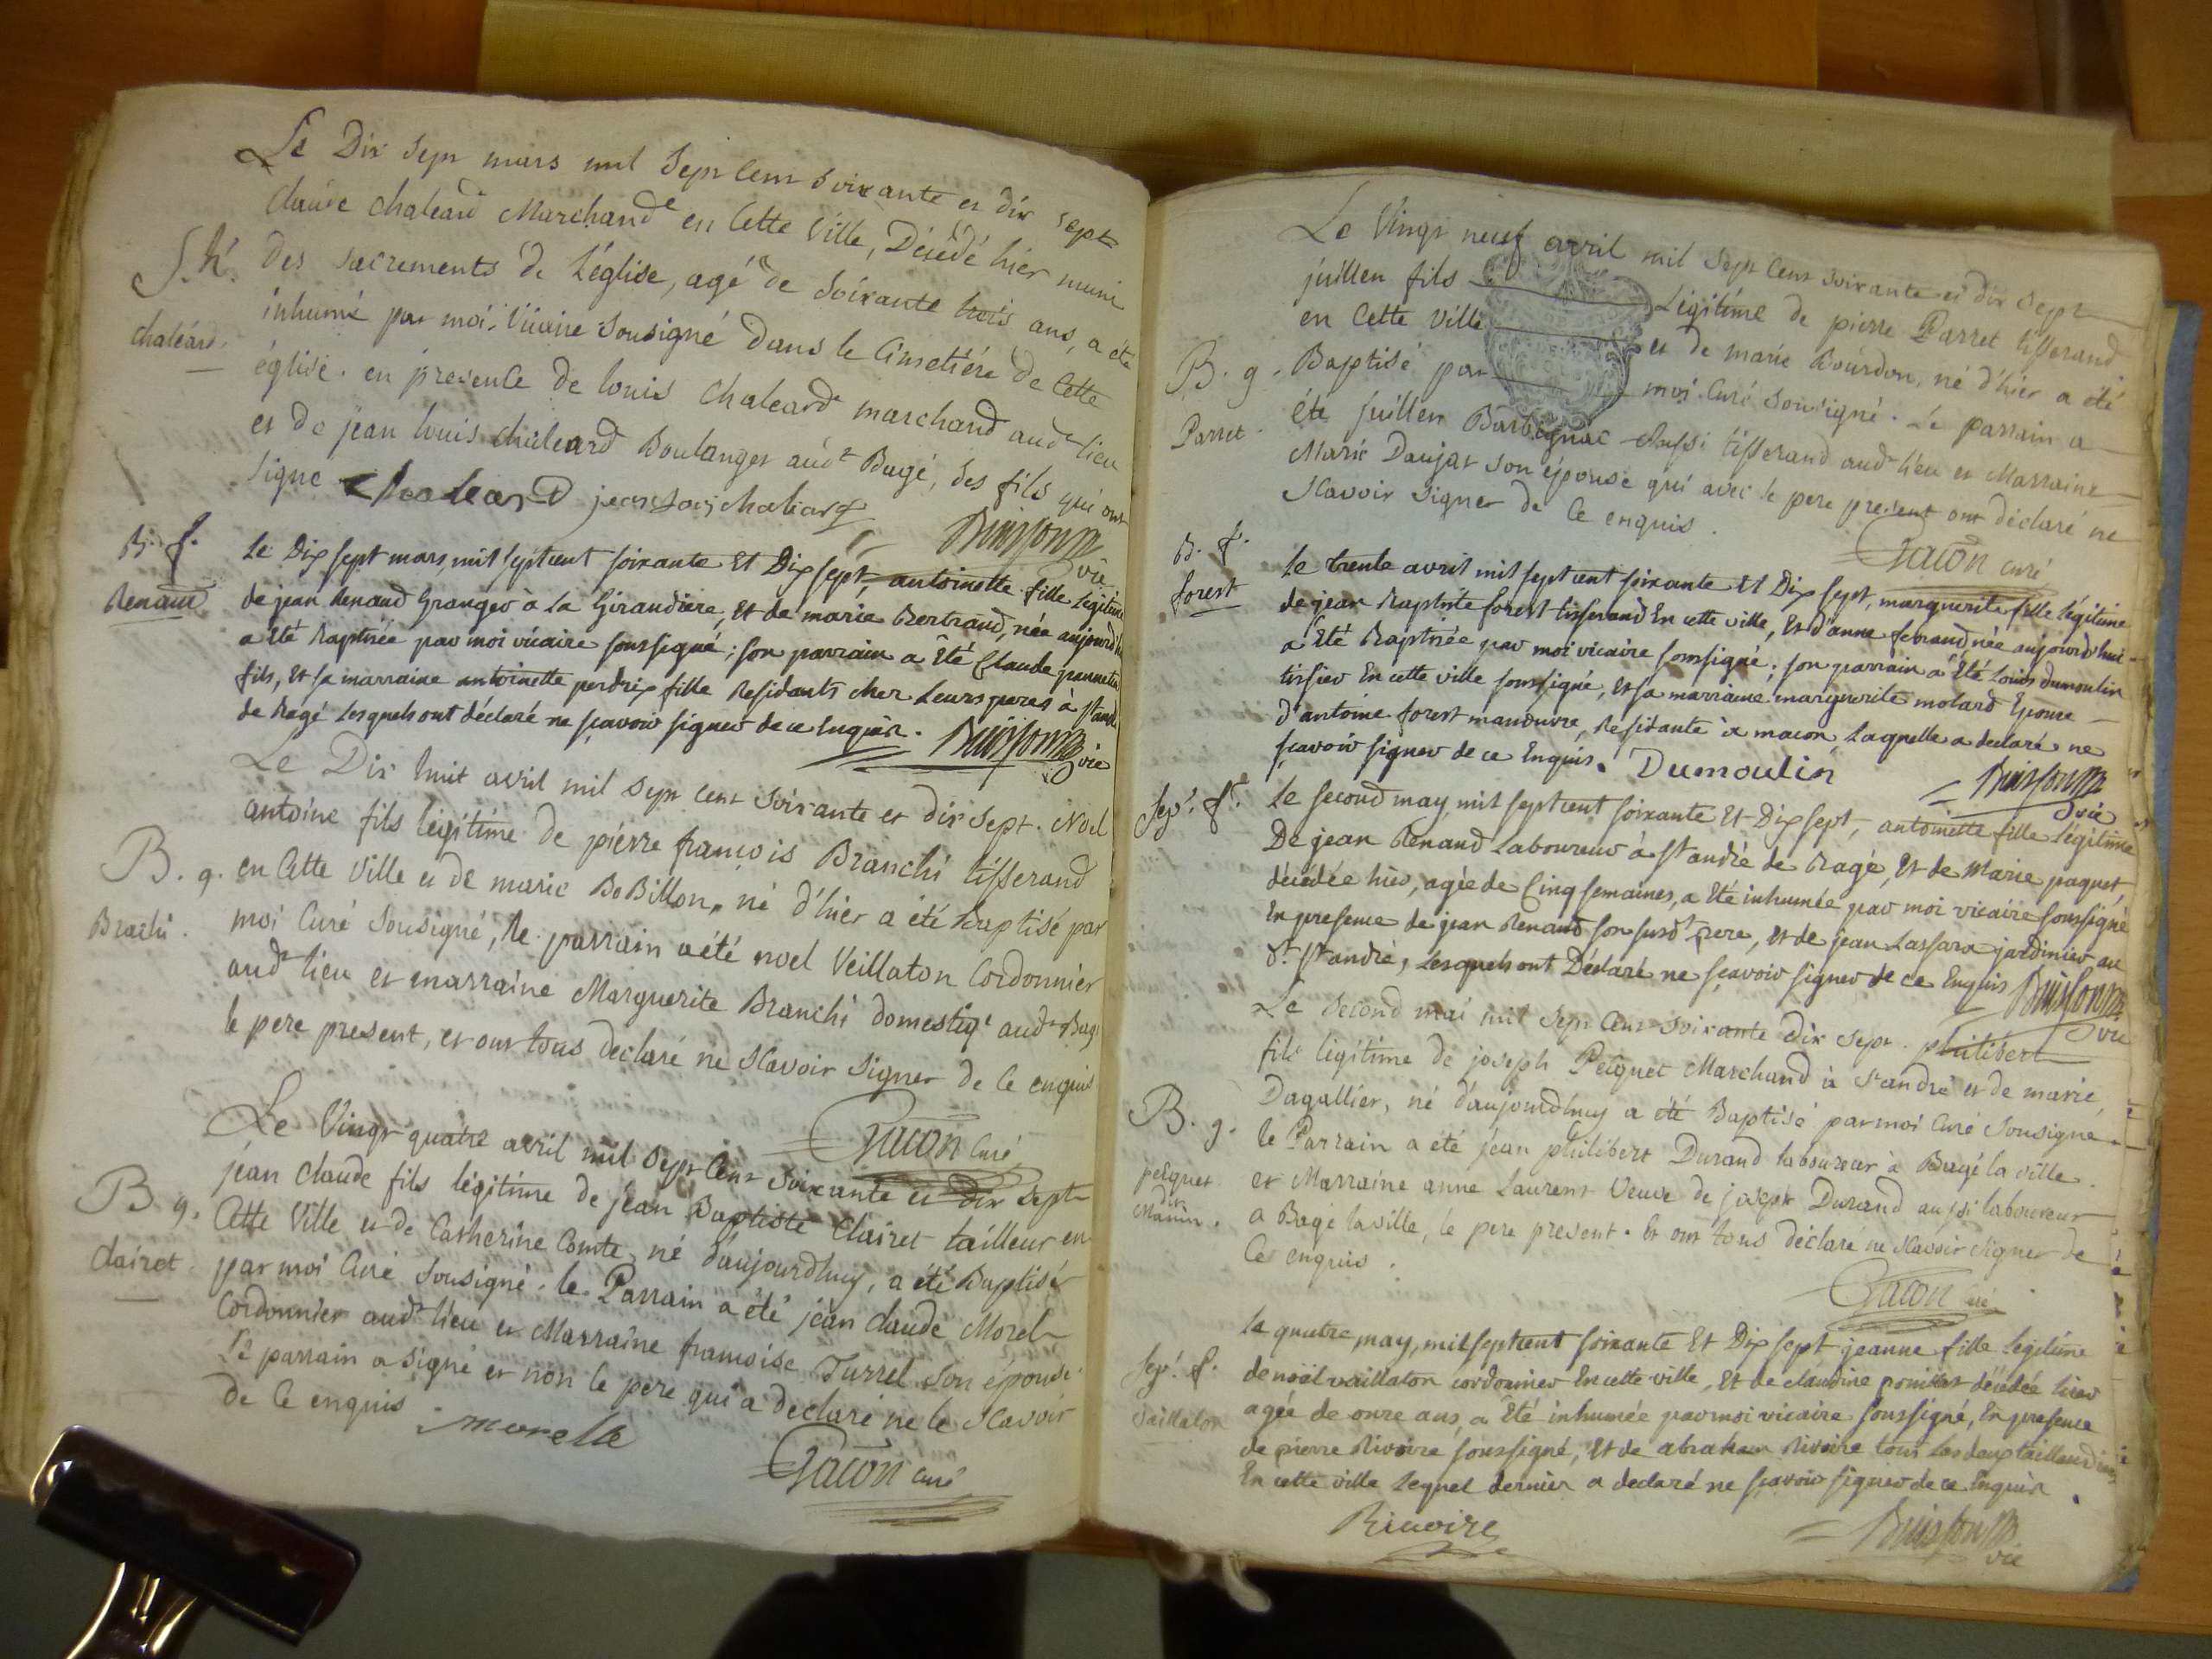 Le Dix Sept mars mil Sept Cent Soixante et dix Sept
Claude Chaleard Marchand en Cette Ville, Décédé hier muni
S. h. des sacrements de L'église, agé de Soixante trois ans, a été
inhumé par moi Vicaire Sousigné dans le Cimetiére de Cette
chaléard.
église. en presence de louis Chaleard marchand aud lieu
et de jean louis chaleard Boulanger aud Bagé, Ses fils qui ont
signé Chaleard jean Louis chaleard
Buisson vic
B. f.
Renaud
Le Dix sept mars, mil sept cent soixante Et Dix sept, antoinette fille Legitime
de jean Renaud Granger à la Giraudiere, Et de marie Bertrand, née aujourd'hui
a Eté Baptisée par moi vicaire soussigné ; son parrain a Eté Claude
fils, Et sa marraine antoinette perdrix fille Residants chez Leurs peres à st andré
de Bagé Lesquels ont déclaré ne sçavoir signer de ce Enquis. Buisson vic
Le Dix huit avril mil Sept Cent Soixante et dix Sept. Noel
antoine fils légitime de piérre françois Branchi tisserand
B. g. en Cette Ville et de marie BoBillon, né d'hier a été Baptisé par
Brachi.
moi Curé Sousigné, le parrain a été noel Veillaton Cordonnier
aud lieu et marraine Marguerite Branchi domestiq aud Bagé
le pere present, et ont tous declaré ne Scavoir Signer de Ce enquis
Gacon Curé
Le Vingt quatre avril mil Sept Cent Soixante et dix Sept
jean Claude fils légitime de jean Baptiste Clairet tailleur en
B g. Cette Ville et de Catherine Comte, né d'aujourdhuy, a été Baptisé
Clairet.
par moi Curé Sousigné. le Parrain a été jean Claude Morel
Cordonnier aud lieu et Marraine françoise Turrel Son épouse
Le parrain a signé et non le pere qui a declaré ne le Scavoir
de Ce enquis morelle
Gacon Curé
Le Vingt neuf avril mil Sept Cent Soixante et dix Sept
juillen fils Légitime de pierre Parret tisserand
en Cette Ville et de marie Bourdon, né d'hier a été
B. g. Baptisé par moi Curé Sousigné. Le parrain a
Parret.
été juillen Barbignac aussi tisserand aud lieu et Marraine
Marie Daujat Son épouse qui avec le pere present ont déclaré ne
Scavoir Signer de Ce enquis.
Gacon curé
B. f.
forest
Le trente avril mil sept cent soixante Et Dix sept, marguerite fille légitime
de jean Baptiste forest tisserand En cette ville, Et d'anne née aujourd'hui
a Eté Baptisée par moi vicaire soussigné ; son parrain a Eté Louis dumoulin
tissier En cette ville soussigné, Et sa marraine marguerite molard Epouse
d'antoine forest manœuvre, Residante à macon, Laquelle a declaré ne
sçavoir signer de ce Enquis. Dumoulin
Buisson vic
Sep. f.
Le second may, mil sept cent soixante Et Dix sept, antoinette fille légitime
De jean Renaud Laboureur à st andré de Bagé, Et de Marie paquet,
décédée hier, agée de Cinq semaines, a Eté inhumée par moi vicaire soussigné
En presence de jean Renaud son susd pere, Et de jean Lassara jardinier au
d. st andré, Lesquels ont Déclaré ne sçavoir signer de ce Enquis Buisson vic
Le Second mai mil Sept Cent Soixante dix Sept. philibert
fils légitime de joseph Pesquet Marchand à St andré et de marie
Dagallier, né d'aujourdhuy a été Baptisé par moi Curé Sousigné.
B. g. le Parrain a été jean philibert Durand laboureur à Bagé la ville.
pesquet
et Marraine anne Laurent Veuve de joseph Durand aussi laboureur
a Bagé la ville, le pere present. Et ont tous déclaré ne Scavoir Signer de
Ce enquis.
Gacon curé
Sep. f.
Vaillaton
Le quatre may, mil sept cent soixante Et Dix sept jeanne fille Legitime
de noël vaillaton cordonnier En cette ville, Et de claudine décédée hier
agée de onze ans, a Eté inhumée par moi vicaire soussigné, En presence
de pierre Rivoire soussigné, Et de abraham Rivoire tous Les deux
En cette ville Lequel dernier a declaré ne sçavoir signer de ce Enquis.
Rivoire
Buisson vic